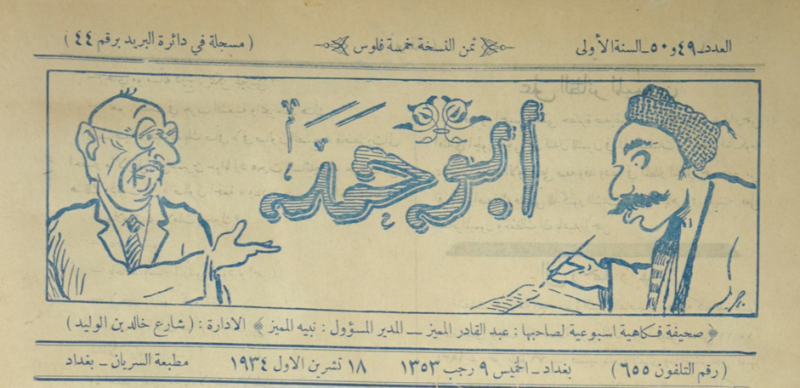 العدد ٤٩ و ٥٠ ـ السنة الأولى ثمن النسخة خمسة فلوس ( مسجلة في دائرة البريد برقم ٤٤ )
ابو حمد
﴿ صحيفة فكاهية اسبوعية لصاحبها : عبد القادر المميز ــ المدير المسؤول : نبيه المميز ﴾ الادارة : ( شارع خالد بن الوليد )
( رقم التلفون ٦٥٥ ) بغداد ـ الخميس ٩ رجب ١٣٥٣ ١٨ تشرين الاول ١٩٣٤ مطبعة السريان ـ بغداد